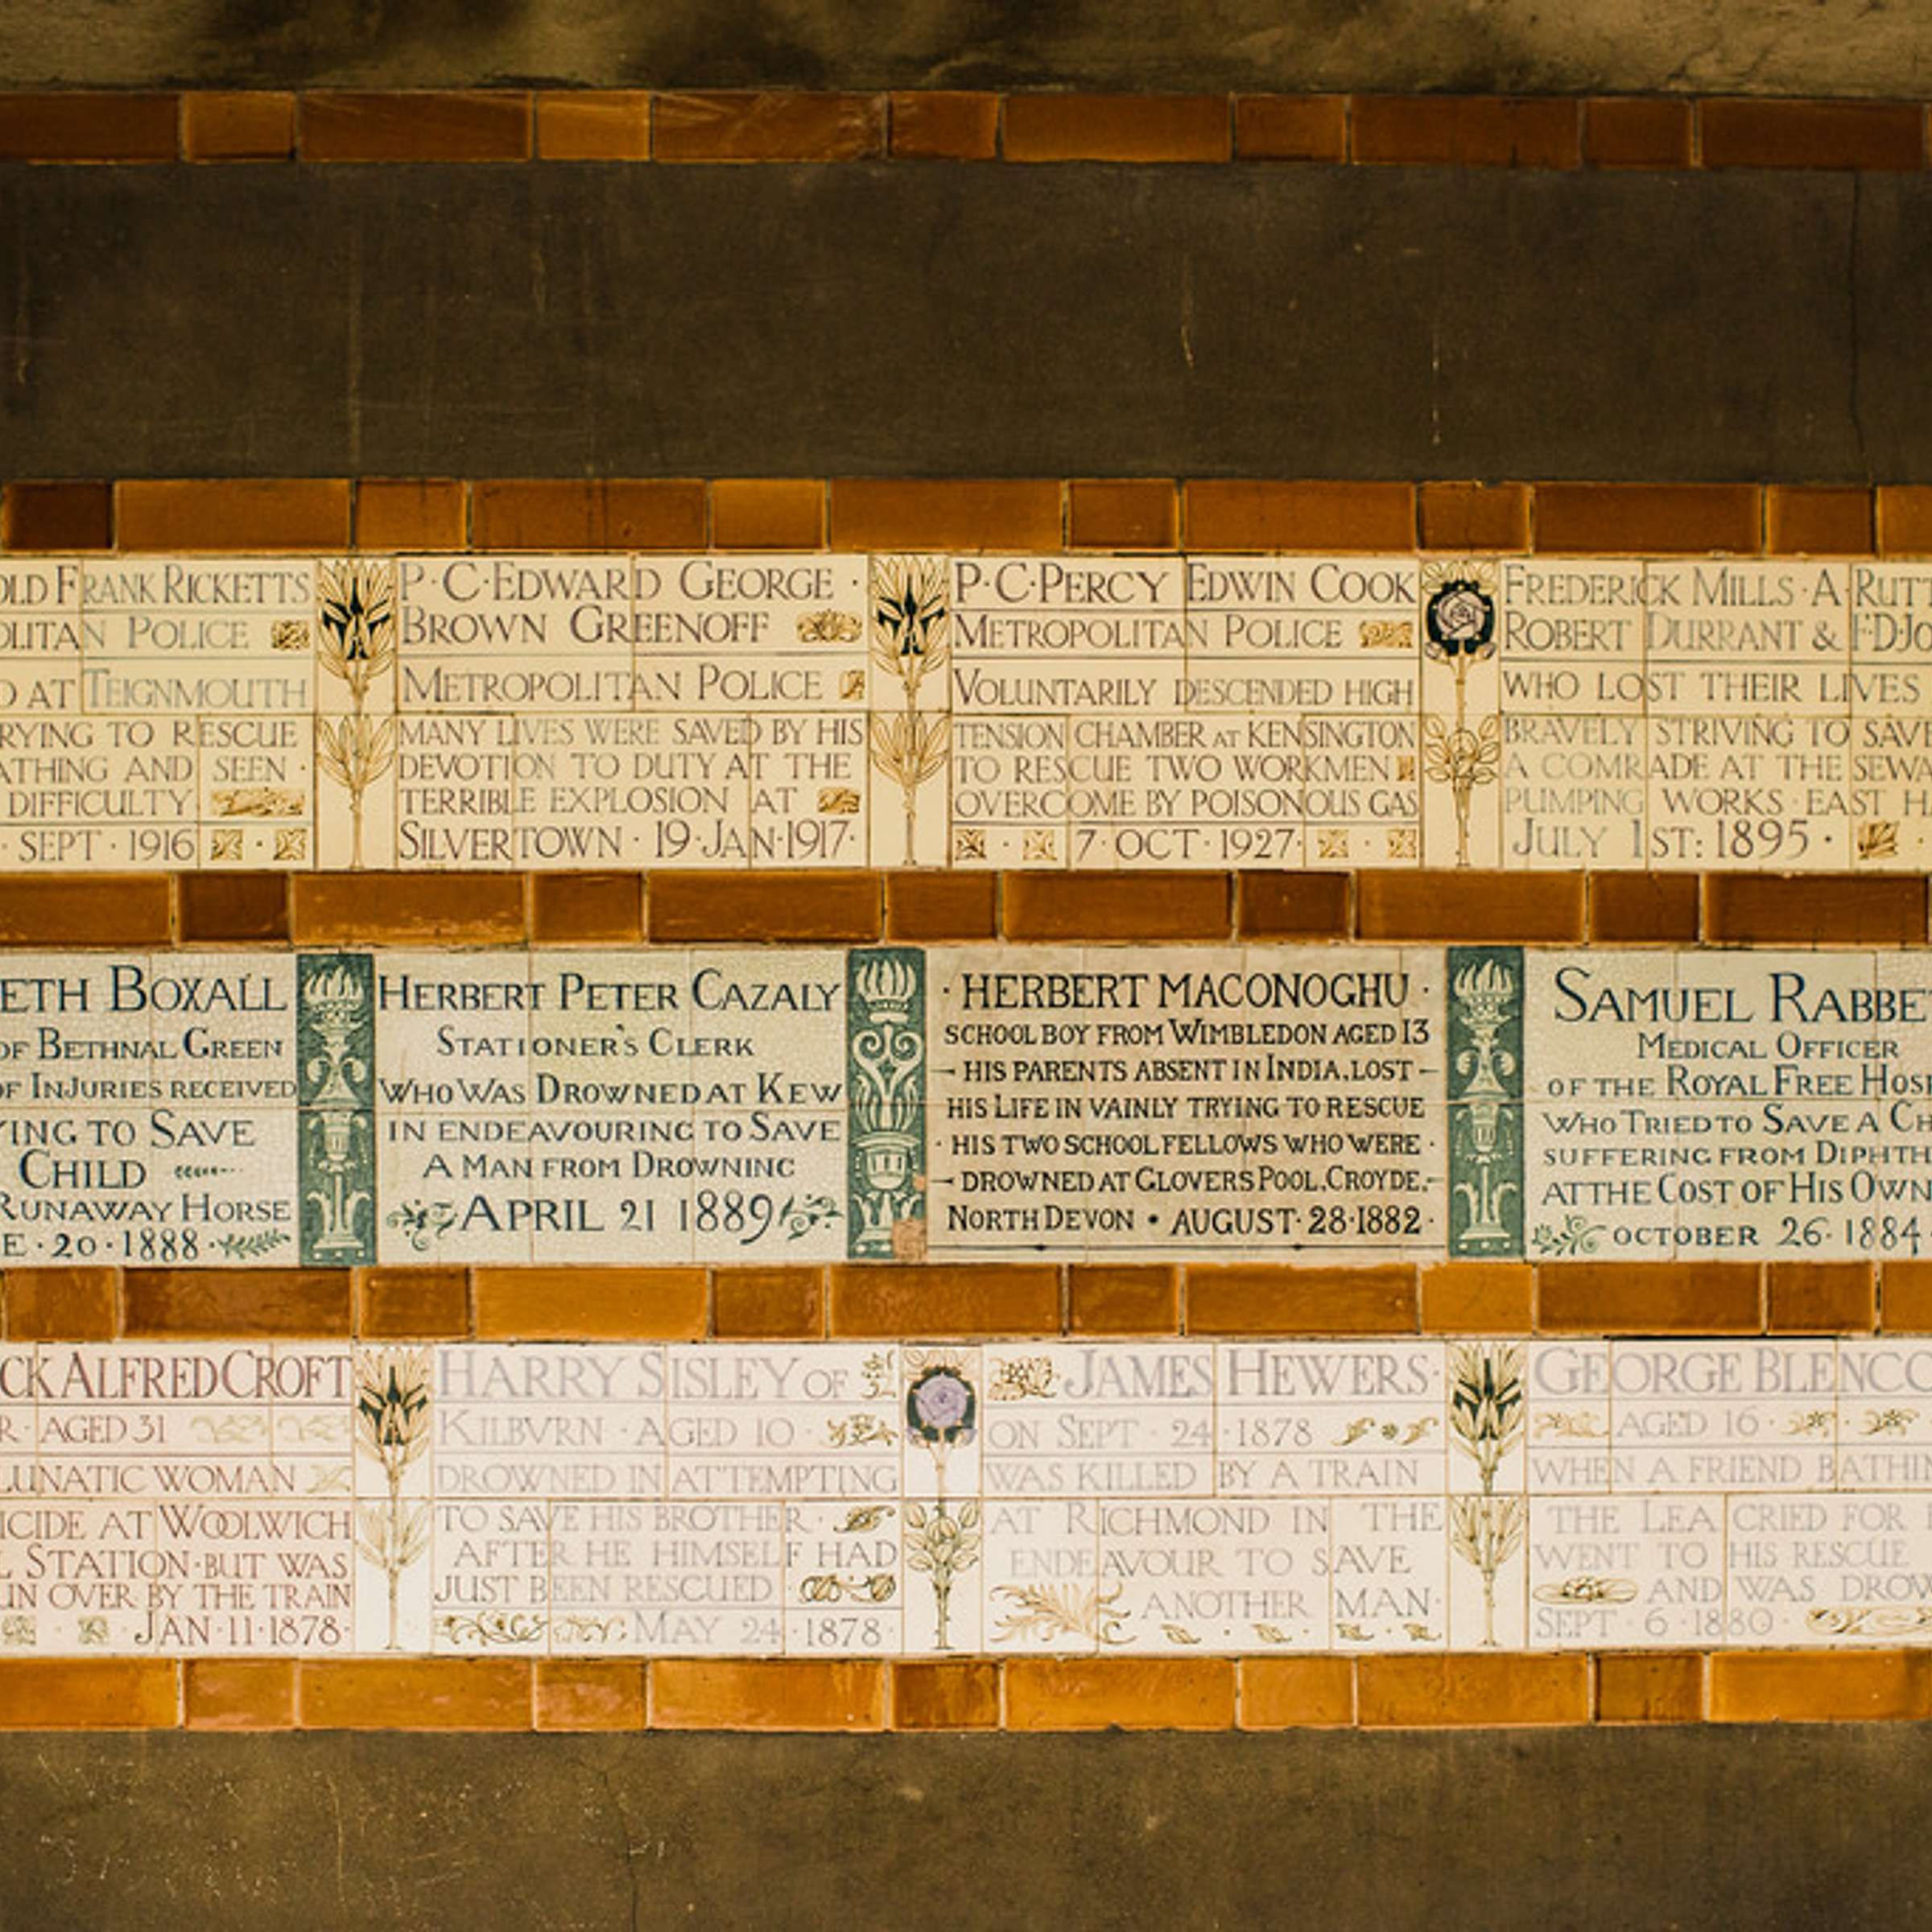 OLD FRANK RICKETTS
OLITAN POLICE
D AT TEIGNMOUTH
RYING TO RESCUE
ATHING AND SEEN ·
DIFFICULTY
· SEPT · 1916
P·C·EDWARD GEORGE ·
BROWN GREENOFF
METROPOLITAN POLICE
MANY LIVES WERE SAVED BY HIS
DEVOTION TO DUTY AT THE
TERRIBLE EXPLOSION AT
SILVERTOWN · 19·JAN·1917·
P·C·PERCY EDWIN COOK
METROPOLITAN POLICE
VOLUNTARILY DESCENDED HIGH
TENSION CHAMBER AT KENSINGTON
TO RESCUE TWO WORKMEN
OVERCOME BY POISONOUS GAS
7·OCT·1927·
FREDERICK MILLS·A·RUTT
ROBERT DURRANT & F·D·JO
WHO LOST THEIR LIVES
BRAVELY STRIVING TO SAVE
A COMRADE AT THE SEWA
PUMPING WORKS·EAST H
JULY 1ST: 1895 ·
ETH BOXALL
OF BETHNAL GREEN
OF INJURIES RECEIVED
YING TO SAVE
CHILD
RUNAWAY HORSE
E·20·1888·
HERBERT PETER CAZALY
STATIONER'S CLERK
WHO WAS DROWNED AT KEW
IN ENDEAVOURING TO SAVE
A MAN FROM DROWNING
APRIL 21 1889
· HERBERT MACONOGHU ·
SCHOOL BOY FROM WIMBLEDON AGED 13
– HIS PARENTS ABSENT IN INDIA, LOST –
HIS LIFE IN VAINLY TRYING TO RESCUE
· HIS TWO SCHOOL FELLOWS WHO WERE ·
– DROWNED AT GLOVERS POOL, CROYDE, –
NORTH DEVON • AUGUST·28·1882·
SAMUEL RABBE
MEDICAL OFFICER
OF THE ROYAL FREE HOSP
WHO TRIED TO SAVE A CH
SUFFERING FROM DIPHTH
AT THE COST OF HIS OWN
OCTOBER 26·1884·
CK ALFRED CROFT
R·AGED 31
LUNATIC WOMAN
ICIDE AT WOOLWICH
L STATION·BUT WAS
UN OVER BY THE TRAIN
· JAN·11·1878·
HARRY SISLEY OF
KILBVRN · AGED 10 ·
DROWNED IN ATTEMPTING
TO SAVE HIS BROTHER·
AFTER HE HIMSELF HAD
JUST BEEN RESCUED
MAY 24 · 1878 ·
JAMES HEWERS·
ON SEPT · 24 · 1878
WAS KILLED BY A TRAIN
AT RICHMOND IN THE
ENDEAVOUR TO SAVE
ANOTHER MAN·
GEORGE BLENCO
AGED 16 ·
WHEN A FRIEND BATHIN
THE LEA CRIED FOR
WENT TO HIS RESCUE
AND WAS DROW
SEPT · 6 · 1880 ·